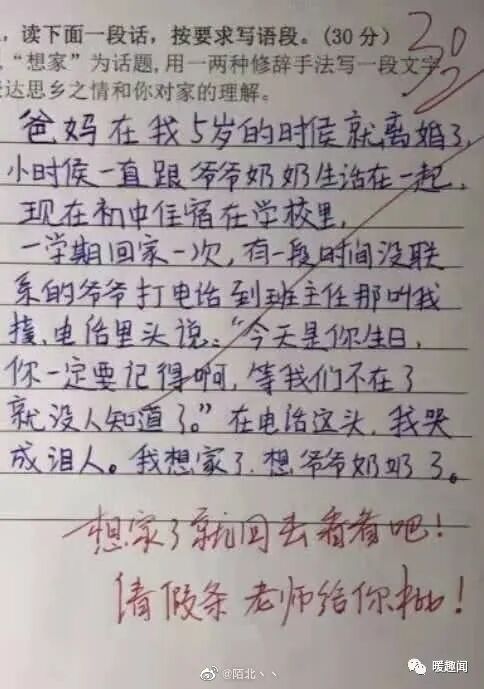 ，读下面一段话，按要求写语段。(30分)
“想家”为话题，用一两种修辞手法写一段文字
达思乡之情和你对家的理解。
30
爸妈在我5岁的时侯就离婚了，
小时侯一直跟爷爷奶奶生活在一起，
现在初中住宿在学校里，
一学期回家一次，有一段时间没联
系的爷爷打电话到班主任那叫我
接，电话里头说：“今天是你生日，
你一定要记得啊，等我们不在了
就没人知道了。”在电话这头，我哭
成泪人。我想家了，想爷爷奶奶了。
想家了就回去看看吧！
请假条老师给你批！
@陌北丶丶
暖趣闻